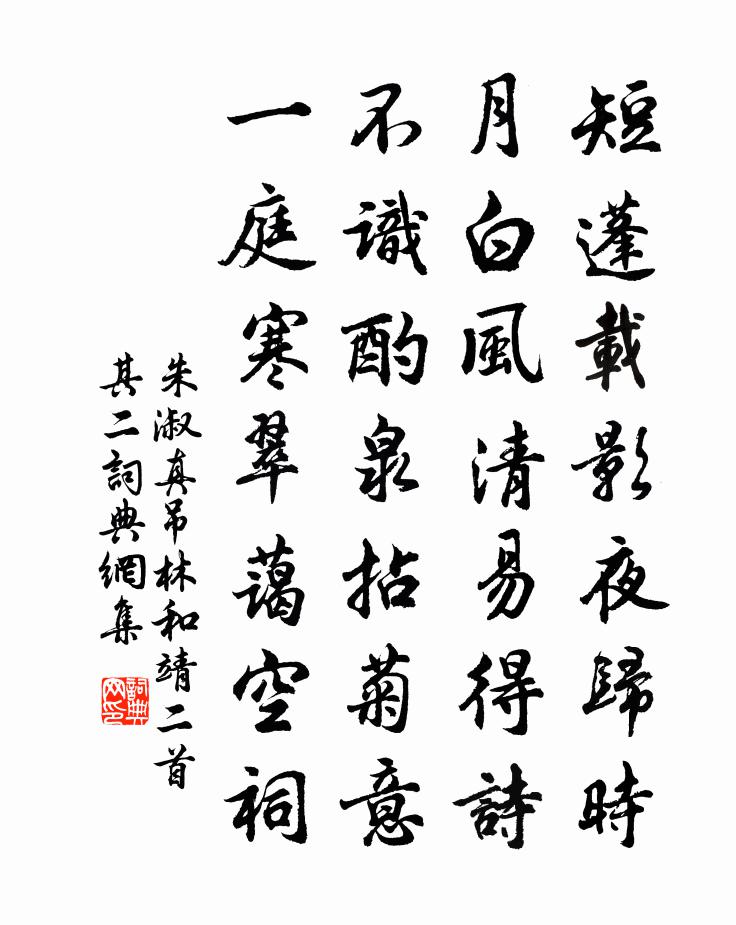 短蓬載影夜歸時
月白風清易得詩
不識酌泉拈菊意
一庭寒翠藹空祠
朱淑真吊林和靖二首
其二詞典網集
詞典網印